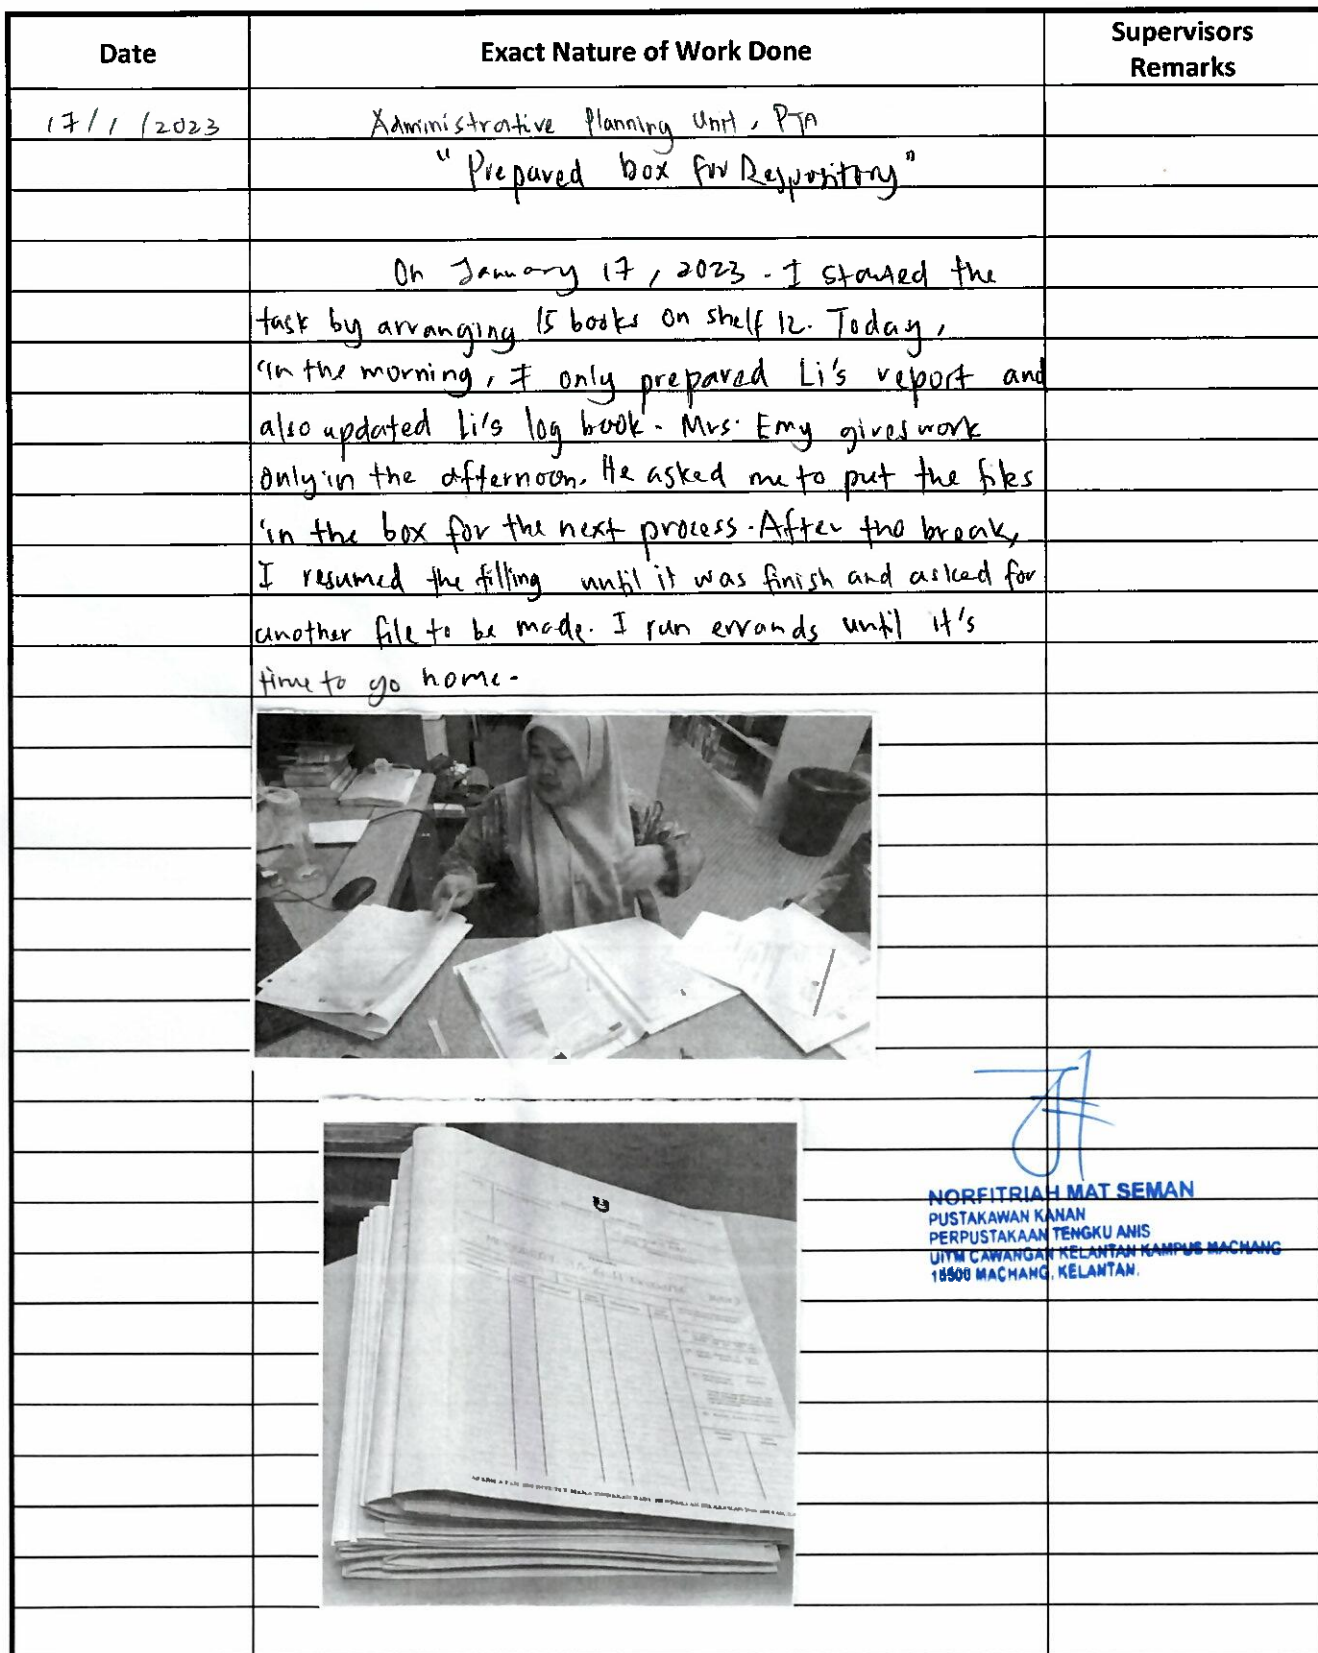 Date
Exact Nature of Work Done
Supervisors
Remarks
17/1/2023
Administrative Planning Unit, PTA
"Prepared box for Respository"
On January 17, 2023. I started the
task by arranging 15 books on shelf 12. Today,
in the morning, I only prepared Li's report and
also updated Li's log book. Mrs. Emy gives work
only in the afternoon. He asked me to put the files
in the box for the next process. After the break,
I resumed the filling until it was finish and asked for
another file to be made. I run errands until it's
time to go home.
NORFITRIAH MAT SEMAN
PUSTAKAWAN KANAN
PERPUSTAKAAN TENGKU ANIS
UITM CAWANGAN KELANTAN KAMPUS MACHANG
18500 MACHANG, KELANTAN.